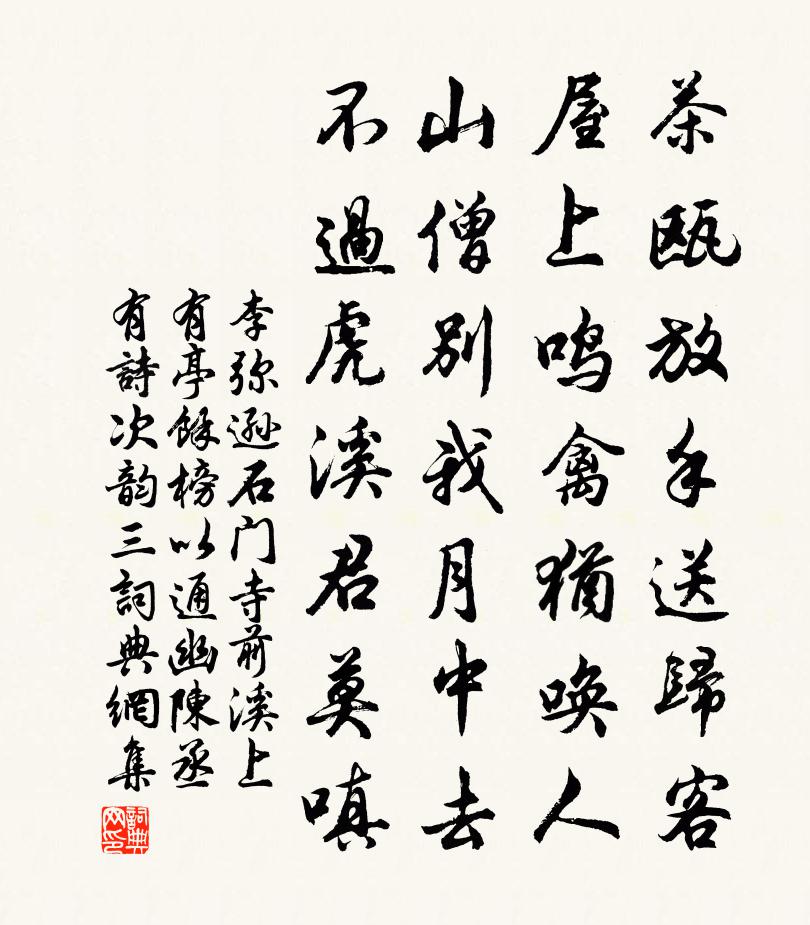 茶甌放手送歸客
屋上鳴禽猶喚人
山僧別我月中去
不過虎溪君莫嗔
李弥遜石门寺前溪上
有亭餘榜以通幽陳丞
有詩次韵三詞典網集
詞典
网印